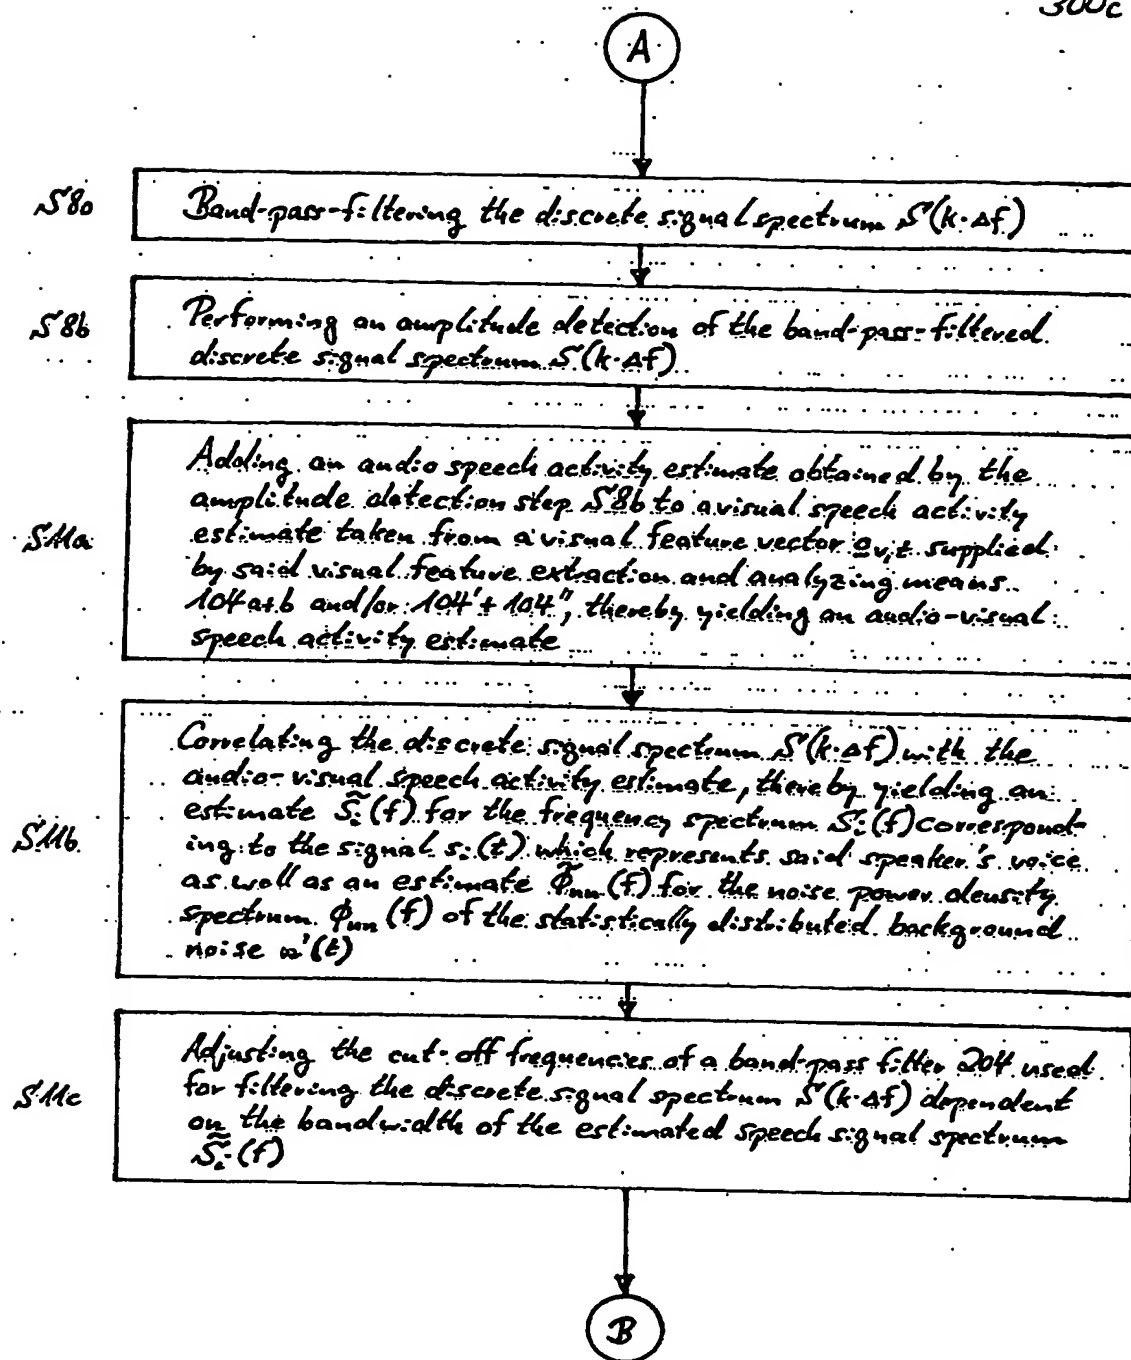 300c
A
S8a
Band-pass-filtering the discrete signal spectrum S(k·Δf)
S8b
Performing an amplitude detection of the band-pass-filtered
discrete signal spectrum S(k·Δf)
S11a
Adding an audio speech activity estimate obtained by the
amplitude detection step S8b to a visual speech activity
estimate taken from a visual feature vector o̲v,t supplied
by said visual feature extraction and analyzing means
104a+b and/or 104'+104", thereby yielding an audio-visual
speech activity estimate
S11b
Correlating the discrete signal spectrum S(k·Δf) with the
audio-visual speech activity estimate, thereby yielding an
estimate S̃i(f) for the frequency spectrum Si(f) correspond-
ing to the signal si(t) which represents said speaker's voice
as well as an estimate Φ̃nn(f) for the noise power density
spectrum Φnn(f) of the statistically distributed background
noise n'(t)
S11c
Adjusting the cut-off frequencies of a band-pass filter 204 used
for filtering the discrete signal spectrum S(k·Δf) dependent
on the bandwidth of the estimated speech signal spectrum
S̃i(f)
B